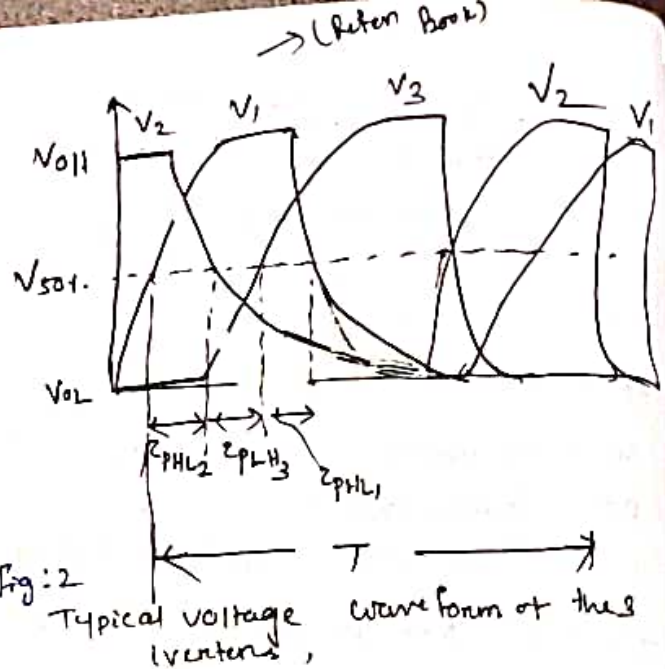 → (Refer Book)
V2 V1 V3 V2 V1
VOH
V50%
VOL
τPHL2 τPLH3 τPHL1
T
Fig: 2
Typical voltage waveform of the 3
Iverters,